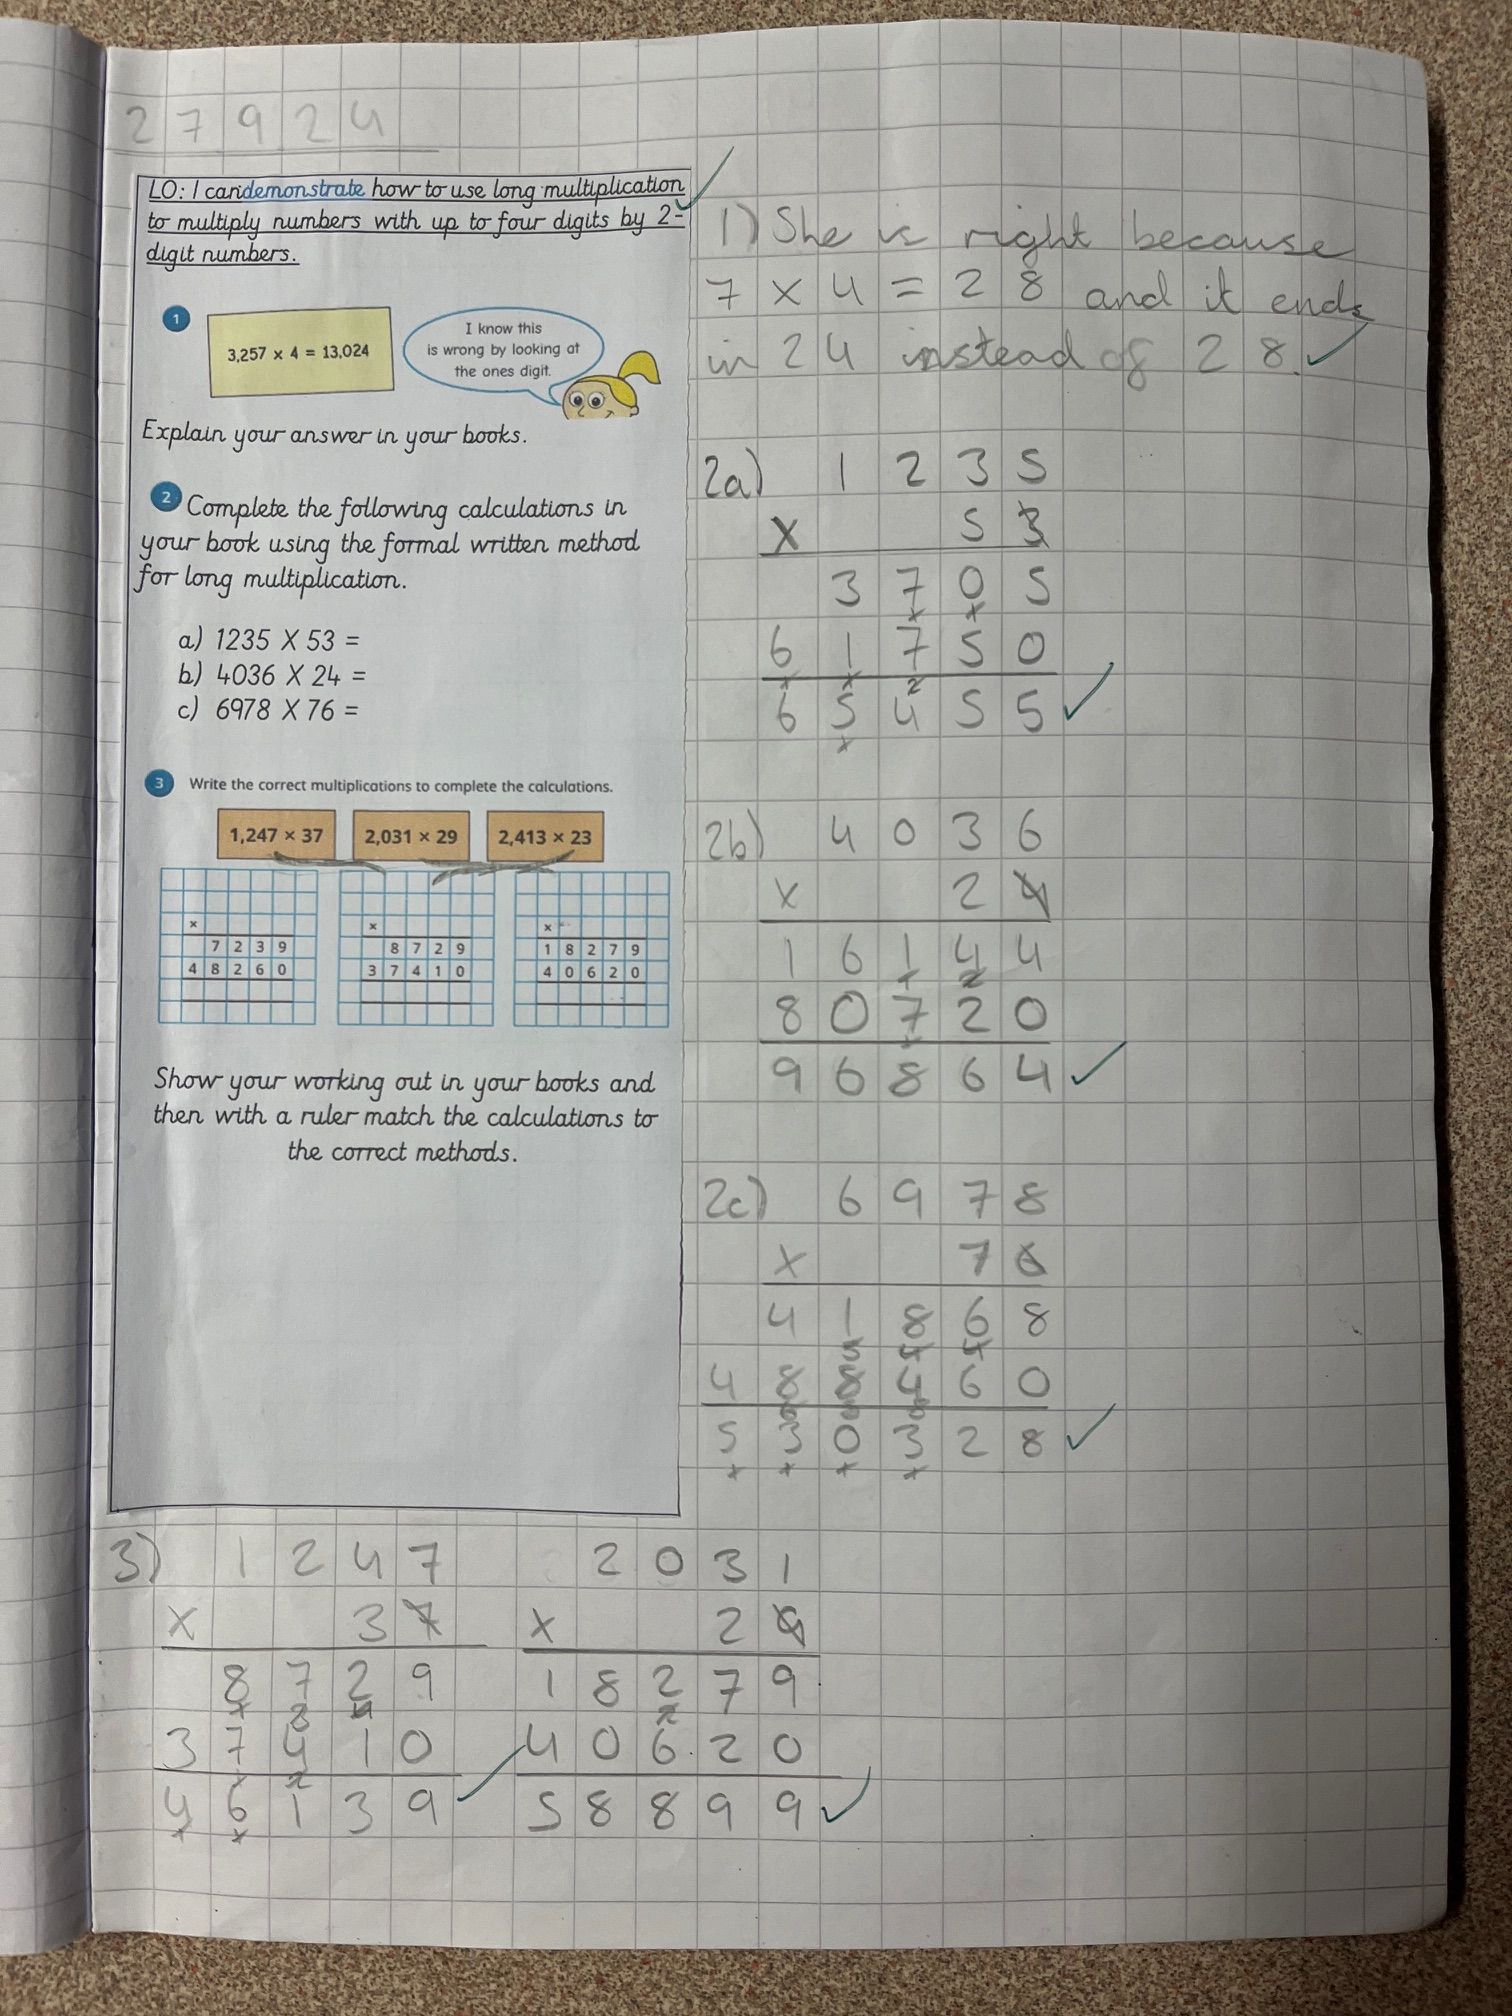 2 7 9 2 4
LO: I can demonstrate how to use long multiplication
to multiply numbers with up to four digits by 2-
digit numbers.
1
3,257 × 4 = 13,024
I know this
is wrong by looking at
the ones digit.
Explain your answer in your books.
2 Complete the following calculations in
your book using the formal written method
for long multiplication.
a) 1235 X 53 =
b) 4036 X 24 =
c) 6978 X 76 =
3 Write the correct multiplications to complete the calculations.
1,247 × 37 2,031 × 29 2,413 × 23
× × ×
7 2 3 9 8 7 2 9 1 8 2 7 9
4 8 2 6 0 3 7 4 1 0 4 0 6 2 0
Show your working out in your books and
then with a ruler match the calculations to
the correct methods.
1) She is right because
7 × 4 = 2 8 and it ends
in 2 4 instead of 2 8.
2a) 1 2 3 5
X 5 3
3 7 0 5
6 1 7 5 0
6 5 4 5 5
2b) 4 0 3 6
X 2 4
1 6 1 4 4
8 0 7 2 0
9 6 8 6 4
2c) 6 9 7 8
X 7 6
4 1 8 6 8
4 8 8 4 6 0
5 3 0 3 2 8
3) 1 2 4 7
X 3 7
8 7 2 9
3 7 4 1 0
4 6 1 3 9
2 0 3 1
X 2 9
1 8 2 7 9
4 0 6 2 0
5 8 8 9 9